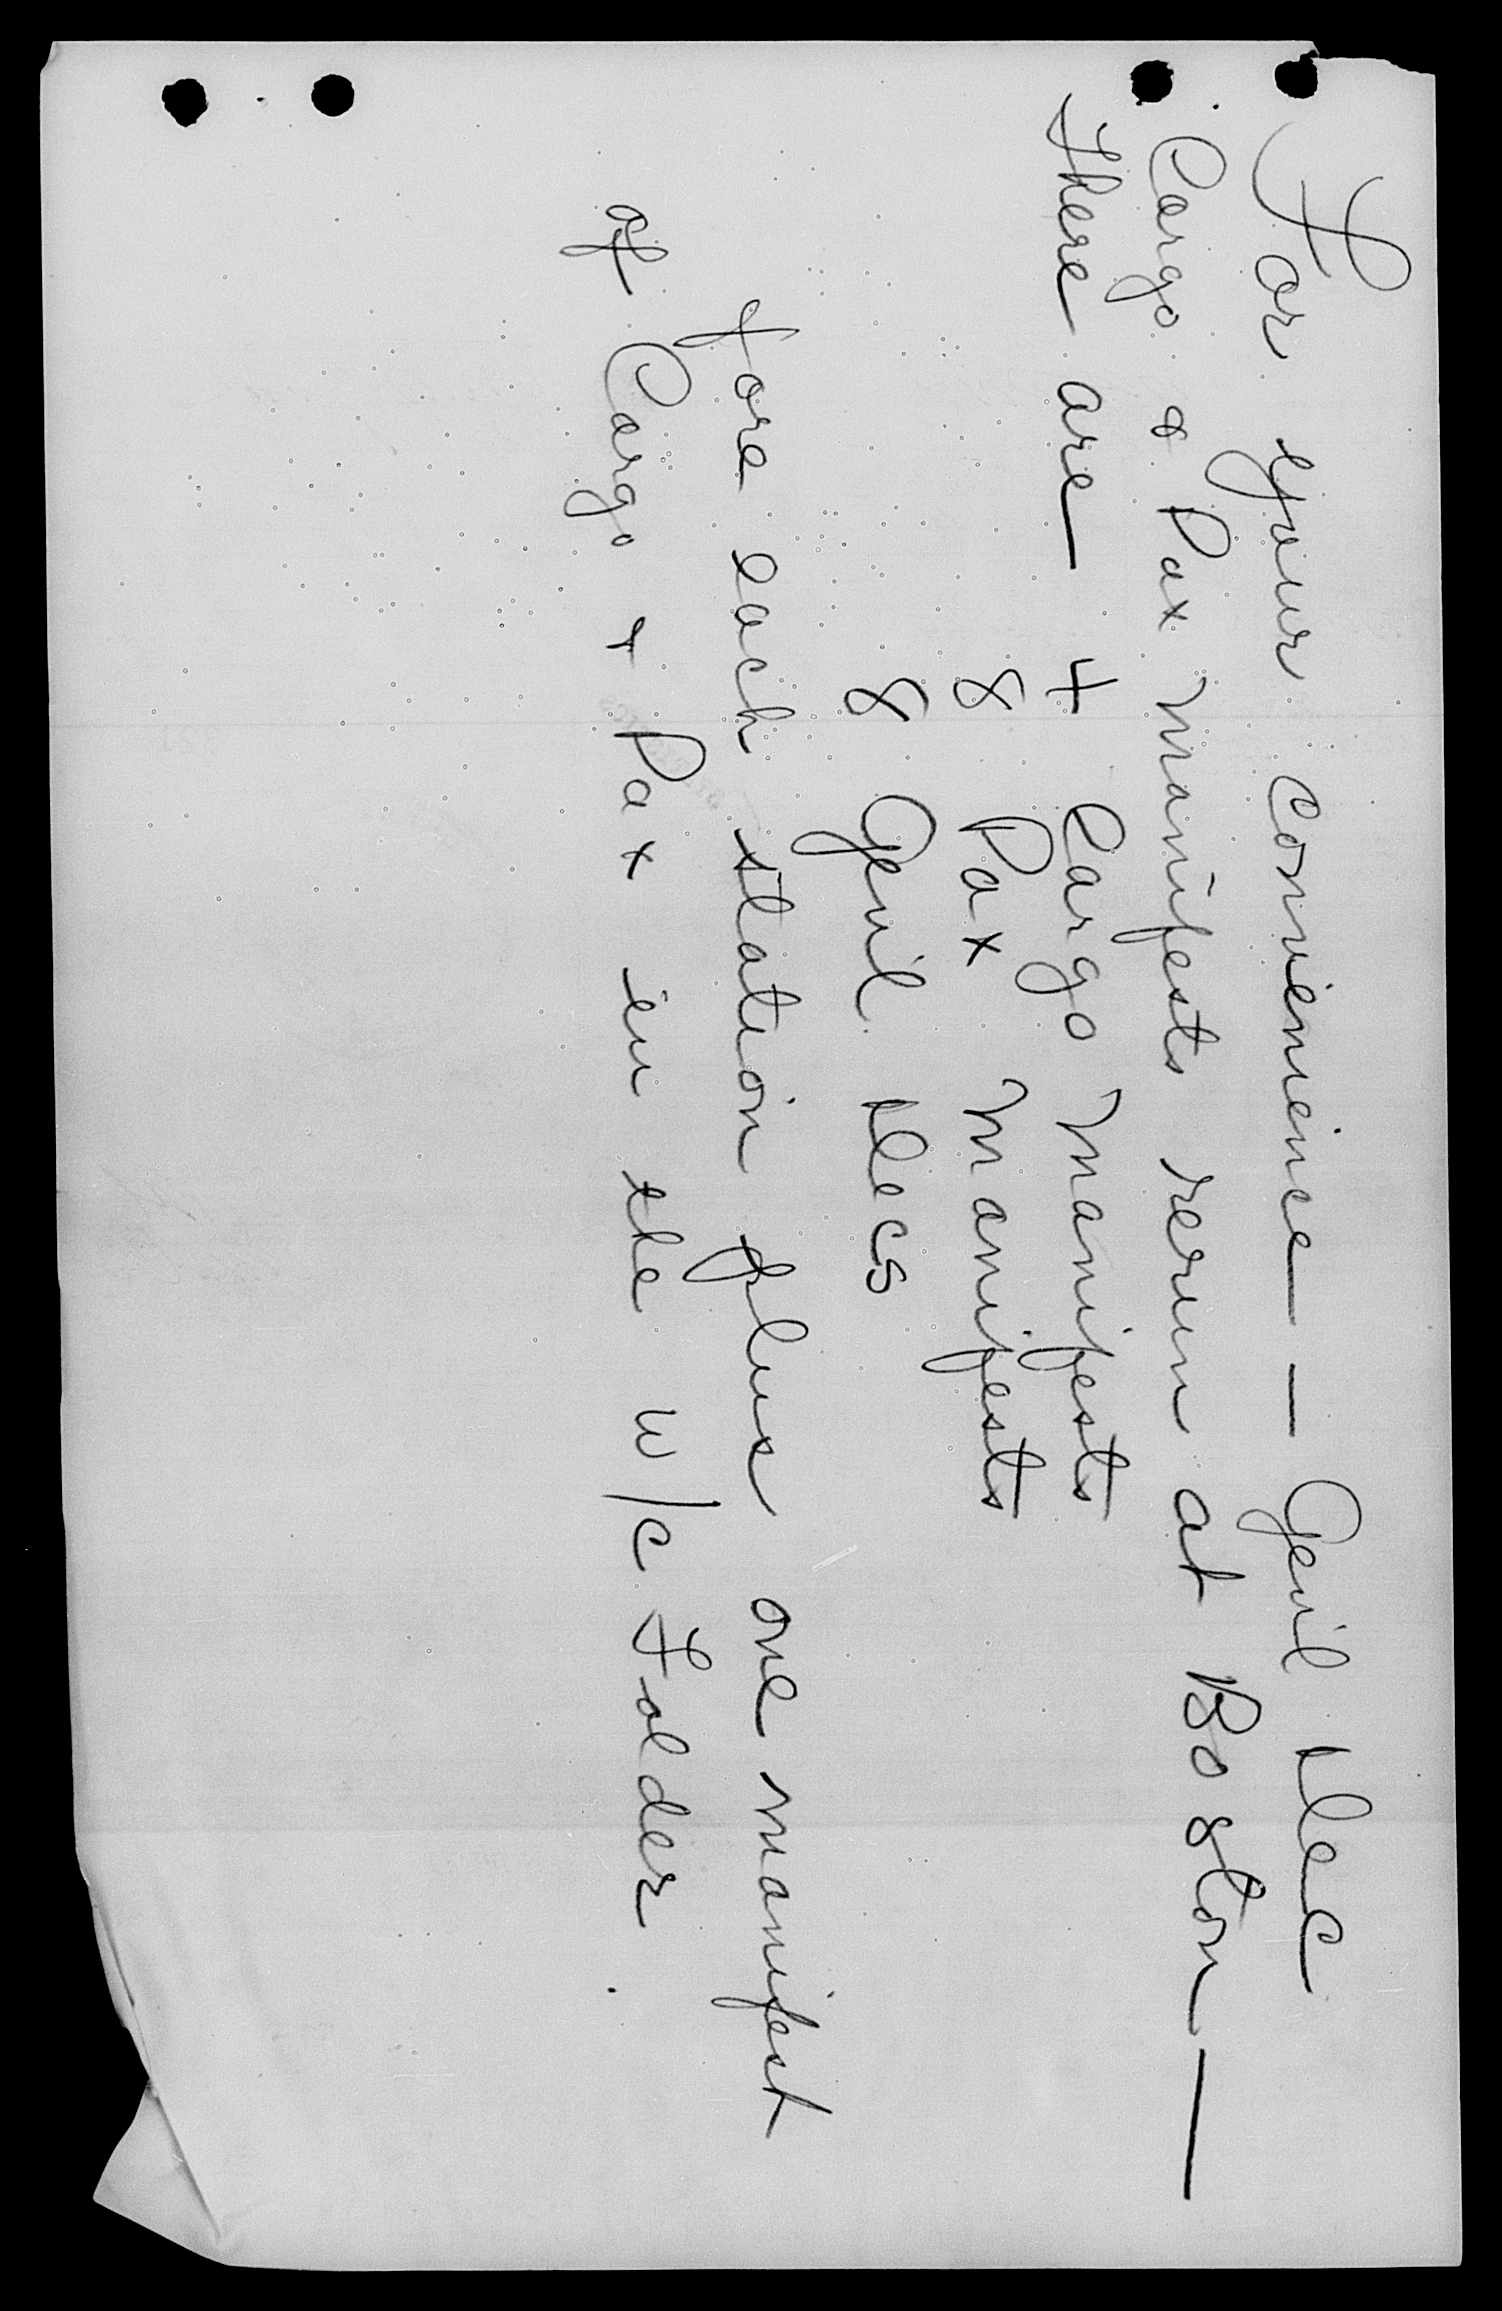 For your convenience — — Gen'l Dec
Cargo & Pax manifests rerun at Boston — —
There are — 4 Cargo Manifests
8 Pax Manifests
8 Gen'l Decs
fore each station plus one manifest
of Cargo & Pax in the W/C Folder.